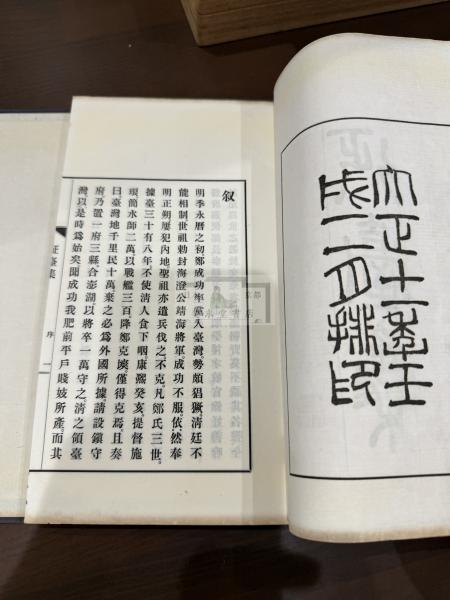 大正十一季壬
戌二月排印
叙
明季永曆之初鄭成功率黨入臺灣勢頗猖獗清廷不
能相制世祖勅封海澄公靖海將軍成功不服、依然奉
明正朔屢犯内地聖祖亦遣兵伐之不克凡鄭氏三世、
據臺三十有八年不使清人食下咽康熙癸亥、提督施
琅簡水師二萬以戰艦三百降鄭克塽、僅得克焉、且奏
曰臺灣地千里民十萬棄之必爲外國所據、請設鎮守
府乃置一府三縣合澎湖以將卒一萬守之、清之領臺
灣以是時爲始矣聞成功我肥前平戶賤妓所產、而其
征臺集
序
一
京都
書店